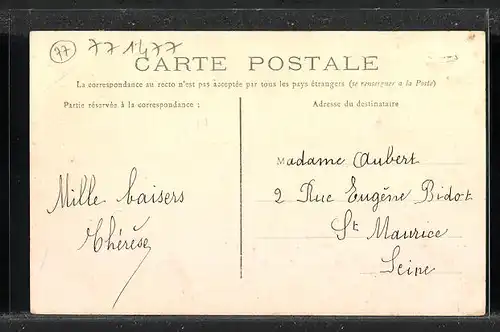 77 771477
CARTE POSTALE
La correspondance au recto n'est pas acceptée par tous les pays étrangers (se renseigner a la Poste)
Partie réservée à la correspondance :
Adresse du destinataire
Madame Aubert
Mille baisers
2 Rue Eugène Bidot
Thérèse
St Maurice
Seine